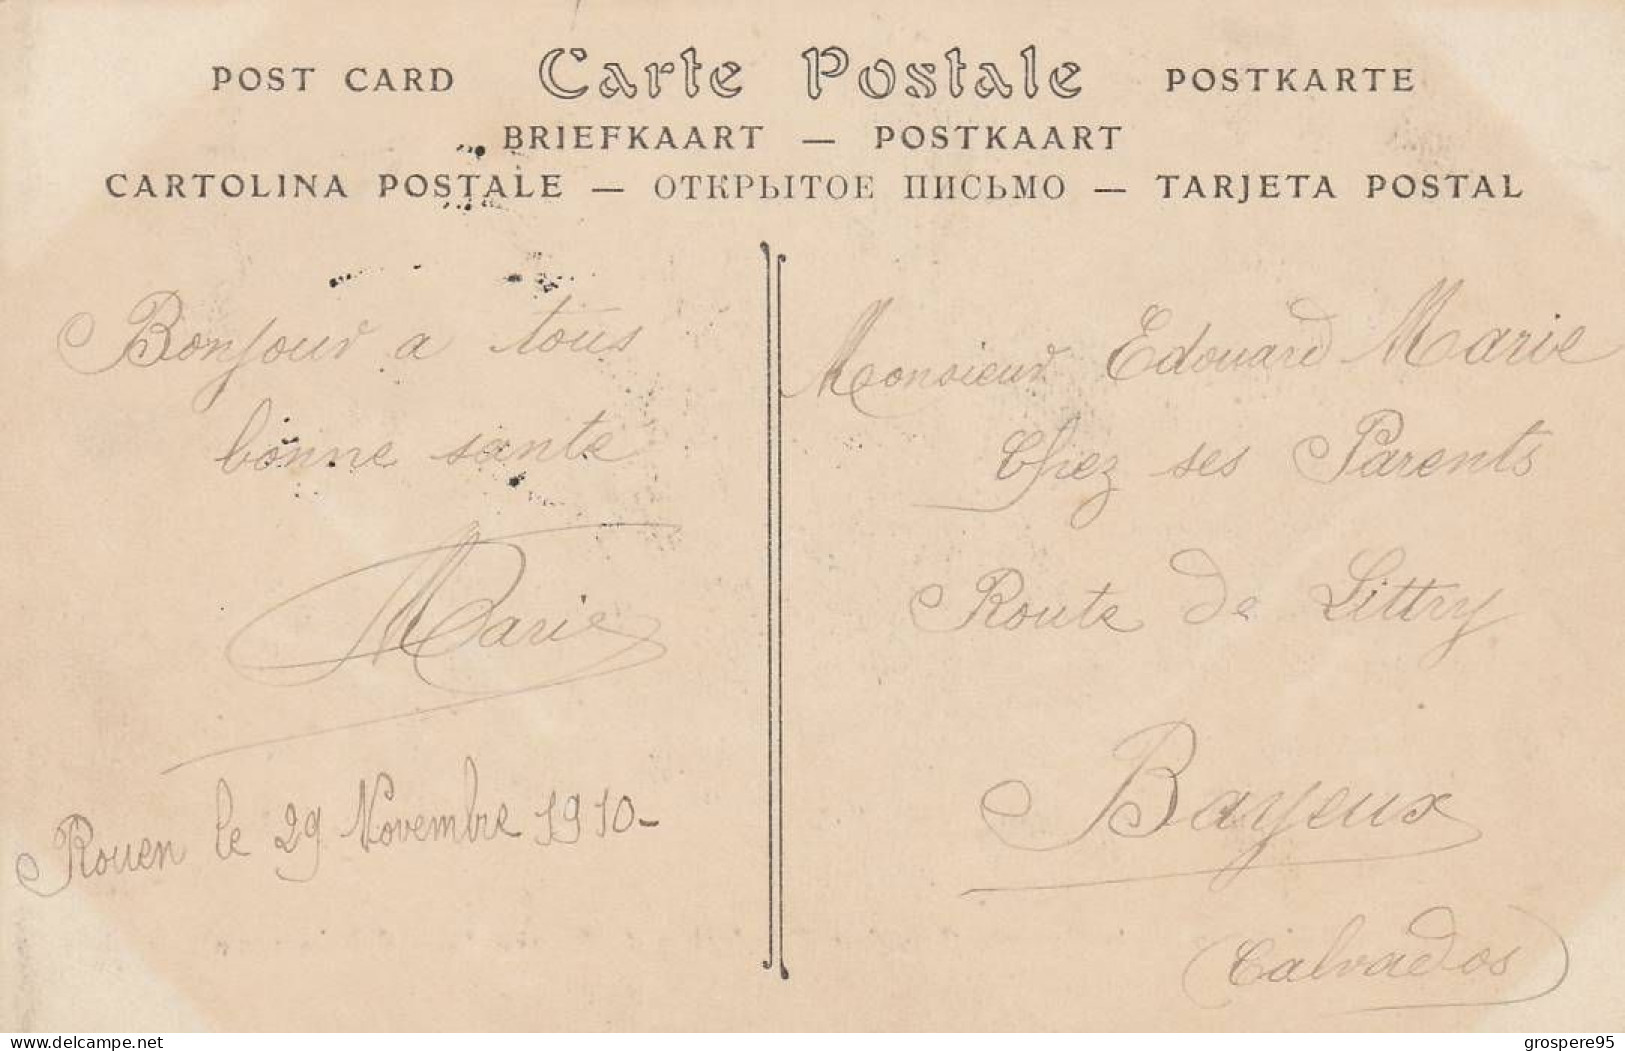 POST CARD Carte Postale POSTKARTE
BRIEFKAART — POSTKAART
CARTOLINA POSTALE — ОТКРЫТОЕ ПИСЬМО — TARJETA POSTAL
Bonjour a tous
bonne sante
Marie
Rouen le 29 Novembre 1910-
Monsieur Edouard Marie
Chez ses Parents
Route de Littry
Bayeux
(Calvados)
www.delcampe.net
grospere95